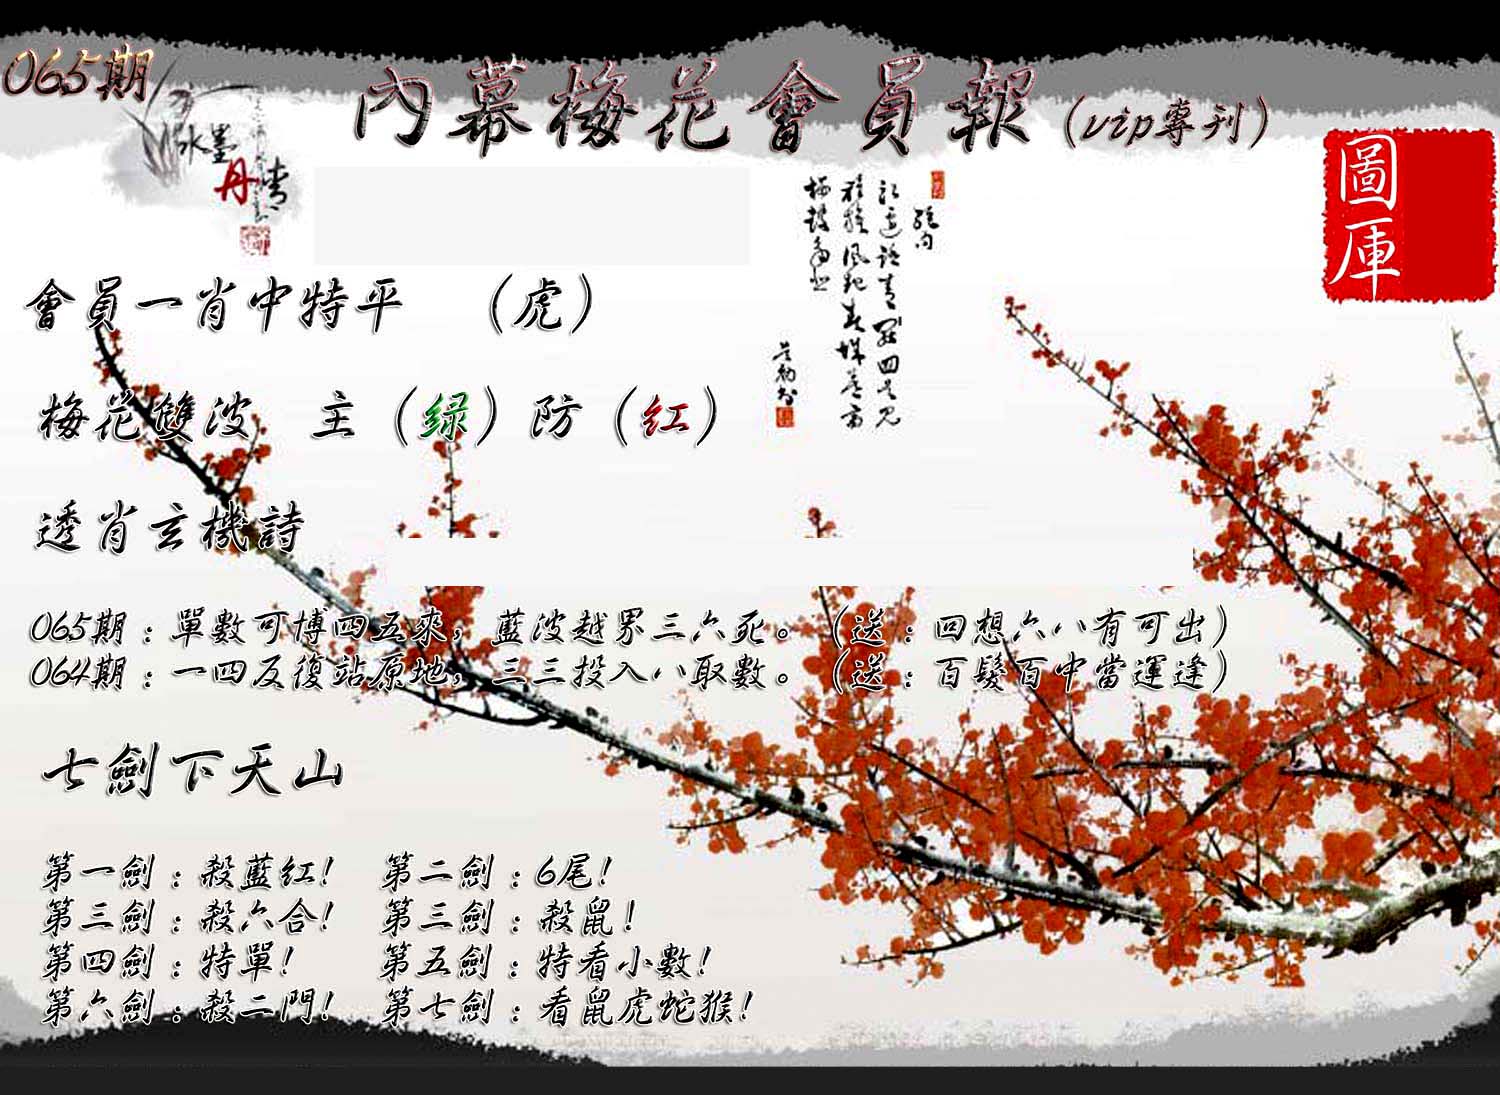 065期
內幕梅花會員報（vip專刊）
水墨
丹青
圖庫
會員一肖中特平　（虎）
梅花雙波　主（绿）防（红）
透肖玄機詩
065期：單數可博四五來，藍波越界三六死。（送：四想六八有可出）
064期：一四反復站原地，三三投入八取數。（送：百髮百中當運逢）
七劍下天山
第一劍：殺藍红！　第二劍：6尾！
第三劍：殺六合！　第三劍：殺鼠！
第四劍：特單！　第五劍：特看小數！
第六劍：殺二門！　第七劍：看鼠虎蛇猴！